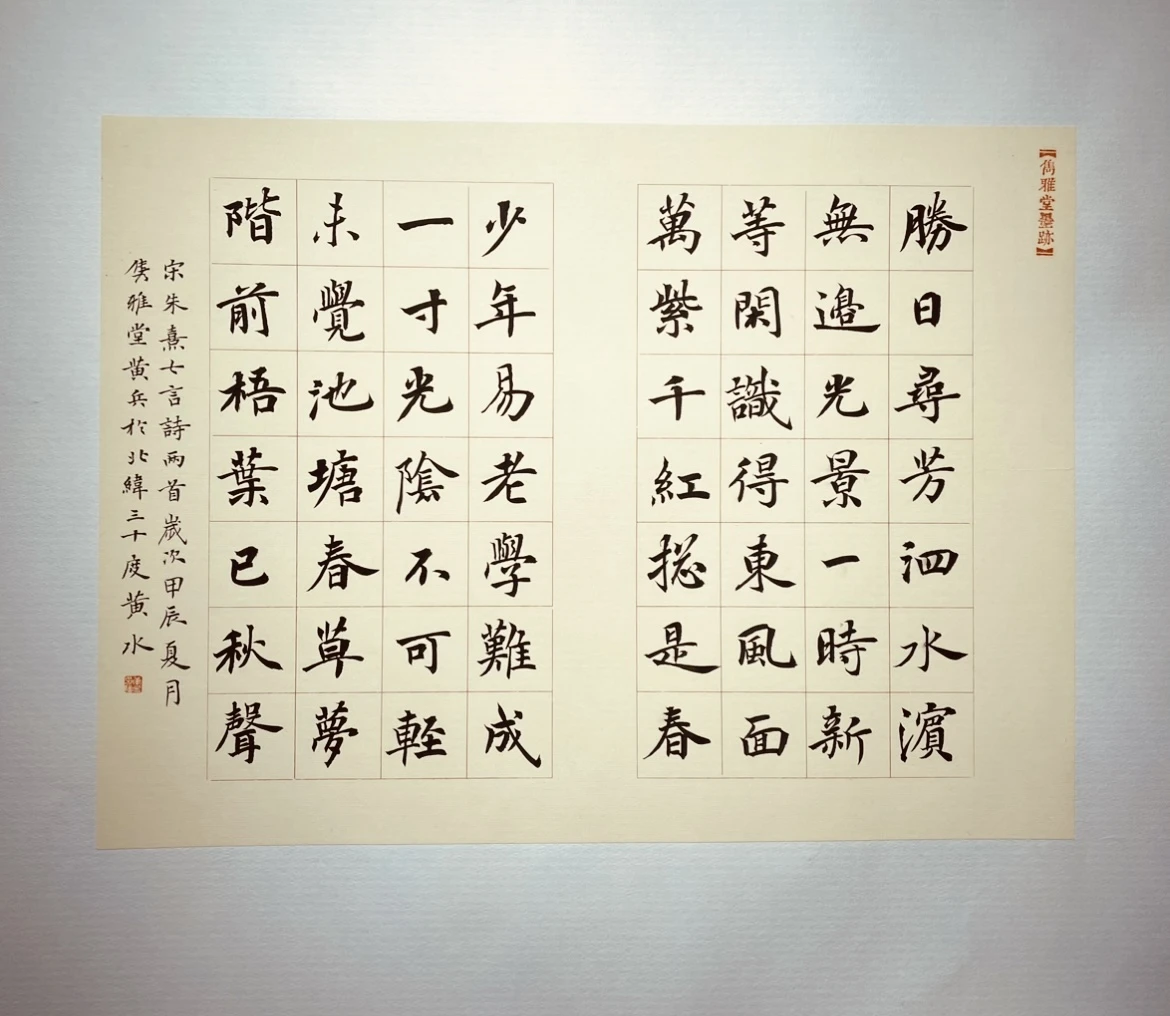 【雋雅堂墨跡】
勝日尋芳泗水濱
無邊光景一時新
等閑識得東風面
萬紫千紅摠是春
少年易老學難成
一寸光陰不可輕
未覺池塘春草夢
階前梧葉已秋聲
宋朱熹七言詩兩首歲次甲辰夏月
隽雅堂黄兵於北緯三十度黄水